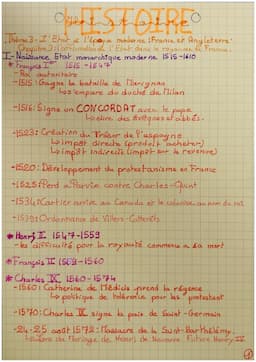 HISTOIRE
Thème 3: L'Etat à l'époque moderne: France et Angleterre
Chapitre 1: L'affirmation de l'Etat dans le royaume de France.
I- Naissance Etat monarchique moderne 1515-1610
* François Ier 1515-1547
- Roi autoritaire
- 1515: Gagne la bataille de Marignan
↳ s'empare du duché de Milan
- 1516: Signe un CONCORDAT avec le pape
↳ élire des évêques et abbés.
- 1523: Création du Trésor de l'espagne
↳ impôt directe (produit acheter)
↳ impôt indirecte (impôt sur le revenue)
- 1520: Développement du protestantisme en France
- 1525: Perd à Pavie contre Charles-Quint
- 1534: Cartier arrive au Canada et le colonise au nom du roi
- 1539: Ordonnance de Villers-Cotterêts
* Henri II 1547-1559
- les difficulté pour la royauté commence à sa mort
* François II 1559-1560
* Charles IX 1560-1574
- 1560: Catherine de Médicis prend la régence
↳ politique de tolérance pour les protestant
- 1570: Charles IX signe la paix de Saint-Germain
- 24-25 août 1572: Massacre de la Saint-Barthélémy.
du Mariage de Henri de Navarre. Future Henri IV
1